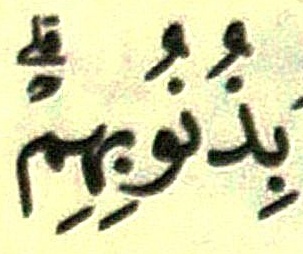 بِذُنُوبِهِمْ ۗ